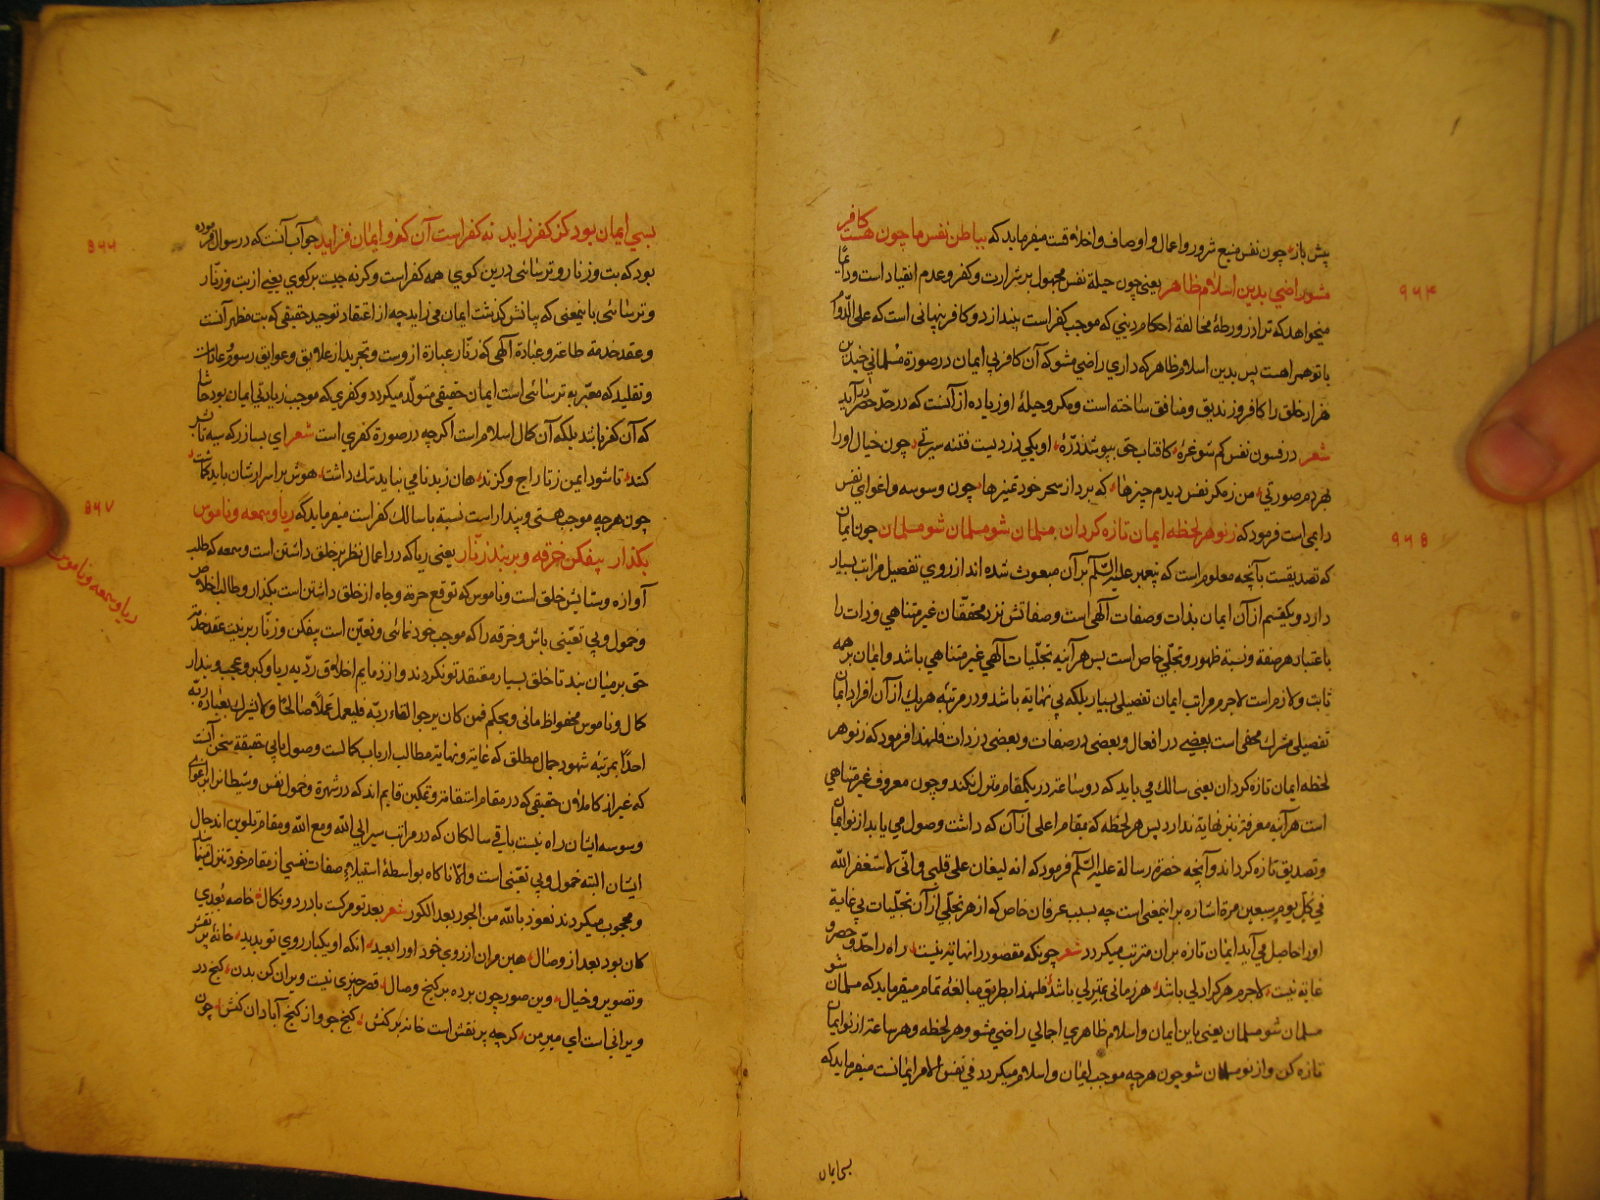 پیش باز چون نفس منبع شرور و اعمال و اوصاف و اخلاق قت میفرماید که بباطن نفس ما چون هست کافر
مشو راضی بدین اسلام ظاهر یعنی چون حیله نفس مجبول بر شرارت و کفر و عدم انقیاد است و دائما
۹۶۴
میخواهد که ترا در ورطهٔ مخالفة احکام دینی که موجب کفر است بیندازد و کافر پنهانی است که علی الدوام
با تو همراهست پس بدین اسلام ظاهر که داری راضی مشو که آن کافر بی ایمان در صورة مسلمانی چندین
هزار خلق را کافر و زندیق و منافق ساخته است و مکر و حیلهٔ او زیاده از آنست که در حد حصر در آید
شعر در فسون نفس کم شو غرهٔ کافتاب حق نپوشد ذرهٔ او یکی دزدیست فتنه سیرتی چون خیال او را
بهر دم صورتی من ز مکر نفس دیدم چیزها که برد از سحر خود تمیزها چون وسوسه و اغوای نفس
دایمی است فرمود که ز نو هر لحظه ایمان تازه کردان مسلمان شو مسلمان شو مسلمان چون ایمان
۹۶۵
که تصدیقست بآنچه معلوم است که پیغمبر علیه السلم بر آن مبعوث شده اند از روی تفصیل مراتب بسیار
دارد و یکقسم از آن ایمان بذات و صفات آلهی است و صفاتش نزد محققان غیر متناهی و ذات را
باعتبار هر صفة و نسبة ظهور و تجلی خاص است پس هر آینه تجلیات آلهی غیر متناهی باشد و ایمان بر همه
ثابت و لازم است لاجرم مراتب ایمان تفصیلی بسیار بلکه بی نهایة باشد و در مرتبه هر یک از آن افراد ایمان
تفصیلی شرک مخفی است بعضی در افعال و بعضی در صفات و بعضی در ذات فلهذا فرمود که ز نو هر
لحظه ایمان تازه کردان یعنی سالک می باید که دو ساعة در یکمقام منزل نکند و چون معروف غیر متناهی
است هر آینه معرفة نیز نهایة ندارد پس هر لحظه که بمقام اعلی از آن که داشت وصول می یابد از نو ایمان
و تصدیق تازه کرداند و آنچه حضرة رسالة علیه السلم فرمود که انه لیغان علی قلبی و انی لاستغفر الله
فی کل یوم سبعین مرة اشاره بر اینمعنی است چه بسبب عرفان خاص که از هر تجلی از آن تجلیات بی غایة
او را حاصل می آید ایمان تازه بران مترتب میکردد شعر چونکه مقصود را نهایة نیست راه را حد و حصر و
غایة نیست لاجرم هر کرا دلی باشد هر زمانی بمنزلی باشد فلهذا بطریق مبالغه تمام میفرماید که مسلمان شو
مسلمان شو مسلمان یعنی باین ایمان و اسلام ظاهری اجمالی راضی مشو و هر لحظه و هر ساعة از نو ایمان
تازه کن و از نو مسلمان شو چون هر چه موجب ایمان و اسلام میکردد فی نفس الامر ایمانست میفرماید که
بسی ایمان
بسی ایمان بود کز کفر زاید نه کفر است آن کزو ایمان فزاید جواب آنست که در سوال فرموده
۹۶۶
بود که بت و زنار و ترسائی درین کوی همه کفر است وکرنه چیست بر کوی یعنی از بت و زنار
و ترسائی باینمعنی که بیانش کذشت ایمان می زاید چه از اعتقاد توحید حقیقی که بت مظهر آنست
و عقد خدمة طاعة و عبادة آلهی که زنار عبارة از وست و تجرید از علایق و عوایق رسوم و عادات
و تقلید که معبر به ترسائی است ایمان حقیقی متولد میکردد و کفری که موجب زیادتی ایمان بود حاشا
که آن کفر باشد بلکه آن کمال اسلام است اکرچه در صورة کفری است شعر ای بسا زر که سیه تابش
کنند تا شود ایمن ز تاراج و کزند هان ز بدنامی نباید تنک داشت هوش بر اسرارشان باید کماشت
چون هر چه موجب هستی و پندار است نسبة با سالک کفر است میفرماید که ریا و سمعه و ناموس
۹۶۷
بکذار بیفکن خرقه و بربند زنار یعنی ریا که در اعمال نظر بر خلق داشتن است و سمعه که طلب
ریا و سمعه و ناموس
آوازه و ستایش خلق است و ناموس که توقع حرمة و جاه از خلق داشتن است بکذار و طالب اخلاص
و خمول و بی تعینی باش و خرقه را که موجب خودنمائی و تعین است بیفکن و زنار بر نیت عقد خدمت
حق بر میان بند تا خلق بسیار معتقد تو نکردند و از ذمایم اخلاق ردیه ریا و کبر و عجب و پندار
کمال و ناموس محفوظ مانی و بحکم فمن کان یرجوا لقاء ربه فلیعمل عملا صالحا ولا یشرک بعبادة ربه
احدا بمرتبه شهود جمال مطلق که غایة و نهایة مطالب ارباب کمالست وصول یابی حقیقة سخن آنست
که غیر از کاملان حقیقی که در مقام استقامة و تمکین قایم اند که در شهرة و خمول نفس و شیطانرا اغوای
وسوسه ایشان راه نیست باقی سالکان که در مراتب سیر الی الله و مع الله و مقام تلوین اند حال
ایشان البته خمول و بی تعینی است والا ناکاه بواسطهٔ استیلاء صفات نفسی از مقام خود تنزل مینمایند
و محجوب میکردند نعوذ بالله من الحور بعد الکور شعر بعد تو مرکیست با درد و نکال خاصه بعدی
کان بود بعد از وصال هین مران از روی خود او را بعید آنکه او یکبار روی تو بدید خانهٔ پر نقش
و تصویر و خیال وین صور چون پرده بر کنج وصال قصر چیزی نیست ویران کن بدن کنج در
ویرانی است ای میر من کرچه پر نقش است خانه بر کنش کنج جو و از کنج آبادان کنش چون